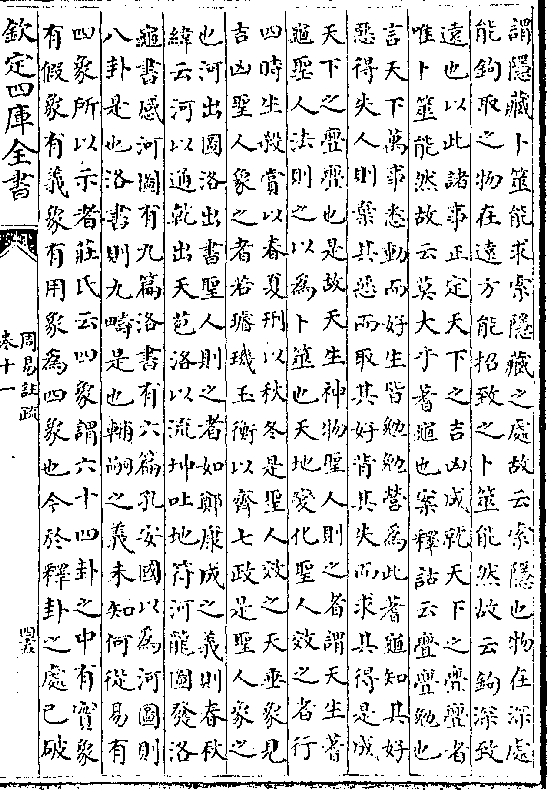 謂隱藏卜筮能求索隱藏之處故云索隱也物在深處
能鉤取之物在遠方能招致之卜筮能然故云鉤深致
遠也以此諸事正定天下之吉凶成就天下之亹亹者
唯卜筮能然故云莫大乎蓍龜也案釋詁云亹亹勉也
言天下萬事悉動而好生皆勉勉營為此蓍龜知其好
惡得失人則棄其惡而取其好背其失而求其得是成
天下之亹亹也是故天生神物聖人則之者謂天生蓍
龜聖人法則之以為卜筮也天地變化聖人效之者行
四時生殺賞以春夏刑以秋冬是聖人效之天垂象見
吉凶聖人象之者若璿璣玉衡以齊七政是聖人象之
也河出圖洛出書聖人則之者如鄭康成之義則春秋
緯云河以通乾出天苞洛以流坤吐地符河龍圖發洛
龜書感河圖有九篇洛書有六篇孔安國以為河圖則
八卦是也洛書則九疇是也輔嗣之義未知何從易有
四象所以示者莊氏云四象謂六十四卦之中有實象
有假象有義象有用象為四象也今於釋卦之處已破
欽定四庫全書
周易註疏
卷十一